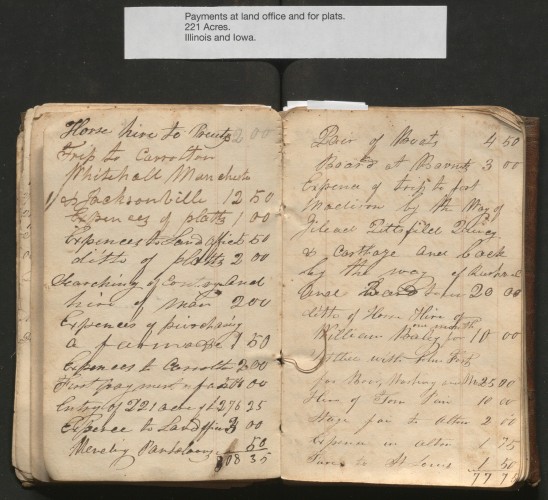 Payments at land office and for plats.
221 Acres.
Illinois and Iowa.
Horse hire to 2 00
Trip to Carrolton
Whitehall Manchester
& Jacksonville 12 50
Expences of platts 1 00
Expences to Land office 1 50
ditto of platts 2 00
Searching of and
hire of man 2 00
Expences of purchasing
a farm 1 50
Expences to Carrolton 2 00
First payment 00
Entry of 221 acres 276 25
Expence to Land office 3 00
Mending Pantaloons 50
308 35
Pair of Boots 4 50
Board at 3 00
Expence of trip to fort
Maddison by the Way of
Gilead Pittsfild Quincy
& Carthage and back
by the way of
and 20 00
ditto of Horse Hire of
one month
William for 10 00
with John
for Washing and 25 00
Hire of 10 00
Stage fair to Alton 2 00
Expences in Alton 1 75
to St Louis 1 50
77 75